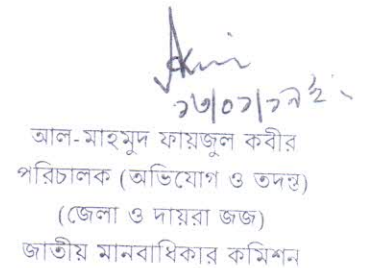 আল-মাহমুদ ফায়জুল কবীর
পরিচালক (অভিযোগ ও তদন্ত)
(জেলা ও দায়রা জজ)
জাতীয় মানবাধিকার কমিশন